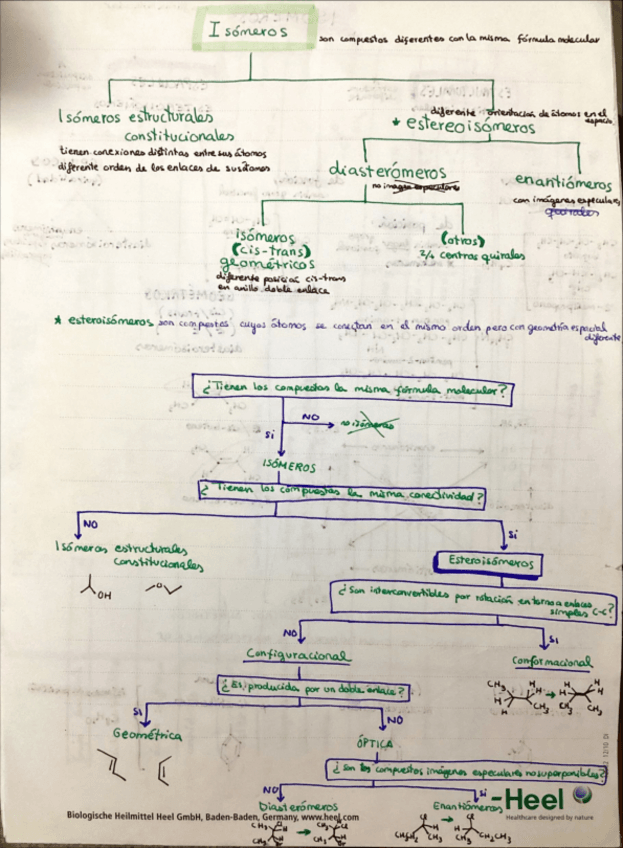 Isómeros
son compuestos diferentes con la misma fórmula molecular
Isómeros estructurales
constitucionales
tienen conexiones distintas entre sus átomos
diferente orden de los enlaces de sus átomos
diferente orientación de átomos en el
espacio
* estereoisómeros
diasterómeros
no imagen especulares
enantiómeros
con imágenes especulares
quirales
isómeros
(cis-trans)
geométricos
diferente posición cis-trans
en anillo doble enlace
(otros)
2/+ centros quirales
* esteroisómeros son compuestos cuyos átomos se conectan en el mismo orden pero con geometría espacial
diferente
¿Tienen los compuestos la misma fórmula molecular?
NO
no isómeros
Si
ISÓMEROS
¿Tienen los compuestos la misma conectividad?
NO
Si
Isómeros estructurales
constitucionales
OH
O
Esteroisómeros
¿Son interconvertibles por rotación en torno a enlaces
simples C-C?
NO
Si
Configuracional
Conformacional
CH3 H H H
H CH3
CH3 CH3
¿Es producida por un doble enlace?
Si
NO
Geométrica
ÓPTICA
¿Son los compuestos imágenes especulares no superponibles?
NO
Si
Diasterómeros
Enantiómeros
-Heel
Healthcare designed by nature
Biologische Heilmittel Heel GmbH, Baden-Baden, Germany, www.heel.com
CH3
CH3
CH3CH2 CH3
CH3 CH2CH3